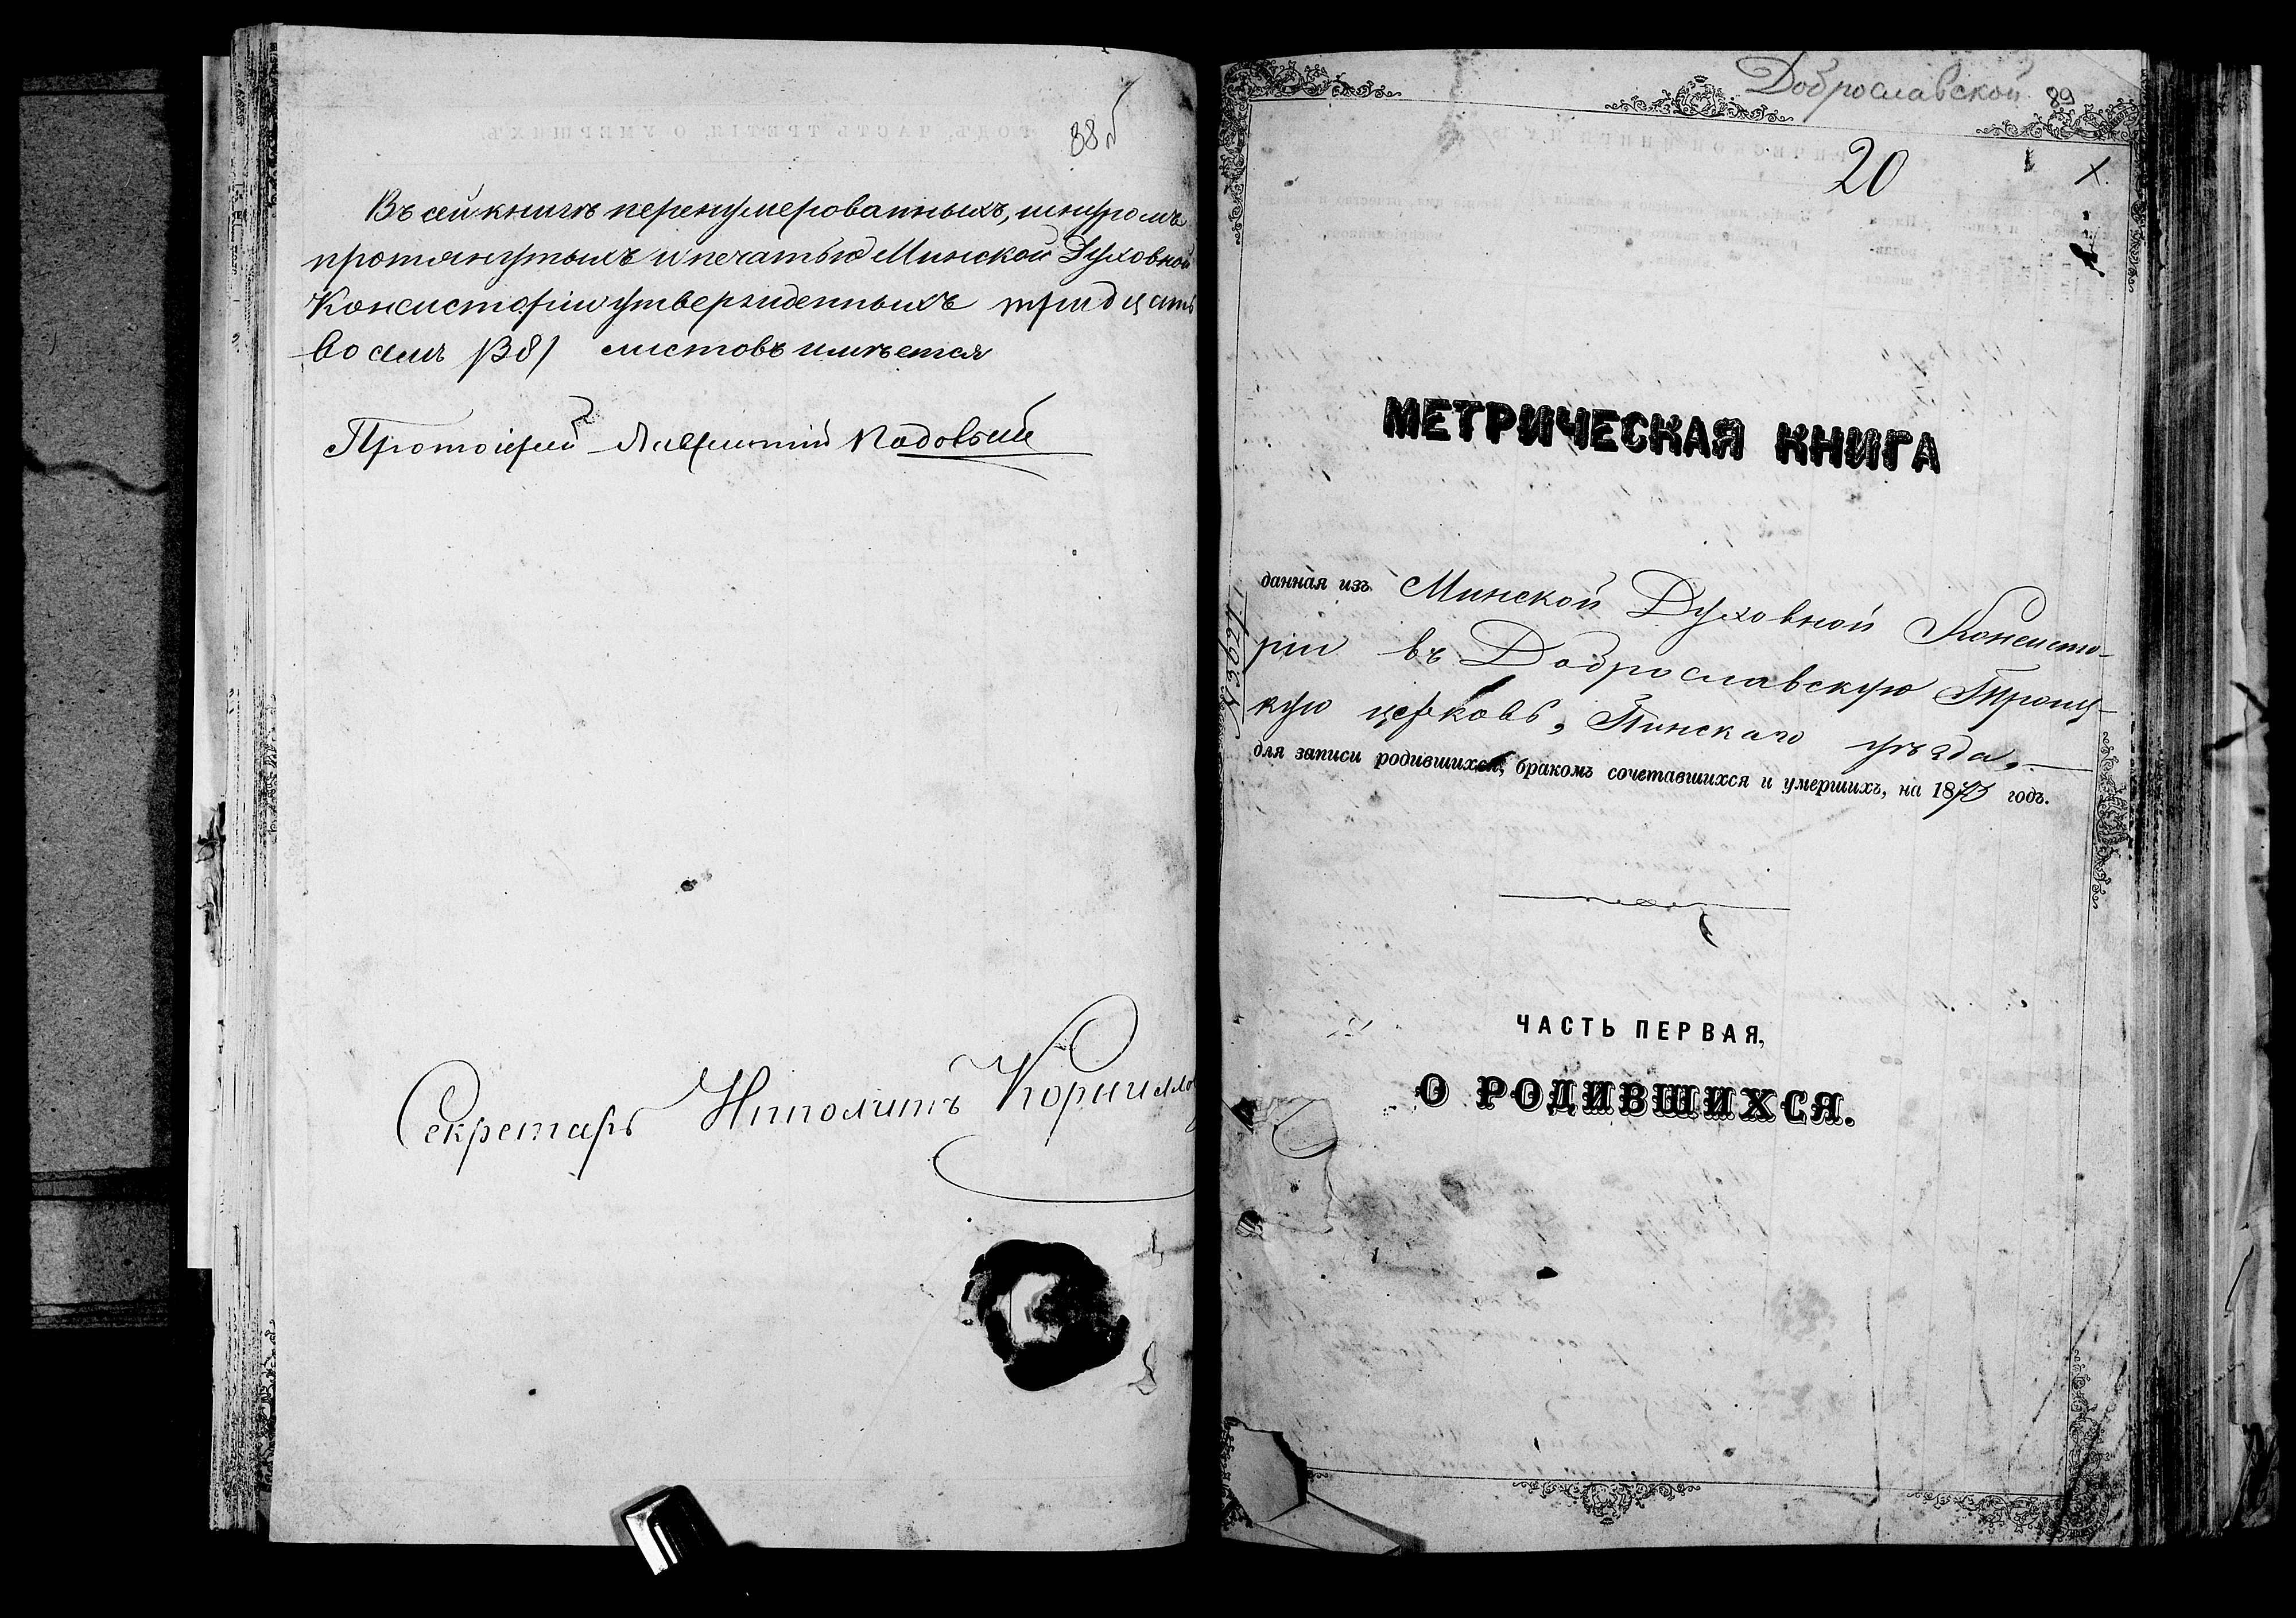 88 об
Въ сей книгѣ перенумерованныхъ, шнуромъ
протянутыхъ и печатью Минской Духовной
Консисторіи утвержденныхъ тридцать
восемь /38/ листовъ имѣется
Протоіерей
Секретарь Ипполитъ
Доброславской 89
20
X.
МЕТРИЧЕСКАЯ КНИГА
данная изъ Минской Духовной Консисто-
ріи въ Доброславскую Троиц-
кую церковь, Пинскаго уѣзда.
для записи родившихся, бракомъ сочетавшихся и умершихъ, на 18 годъ.
ЧАСТЬ ПЕРВАЯ,
О РОДИВШИХСЯ.